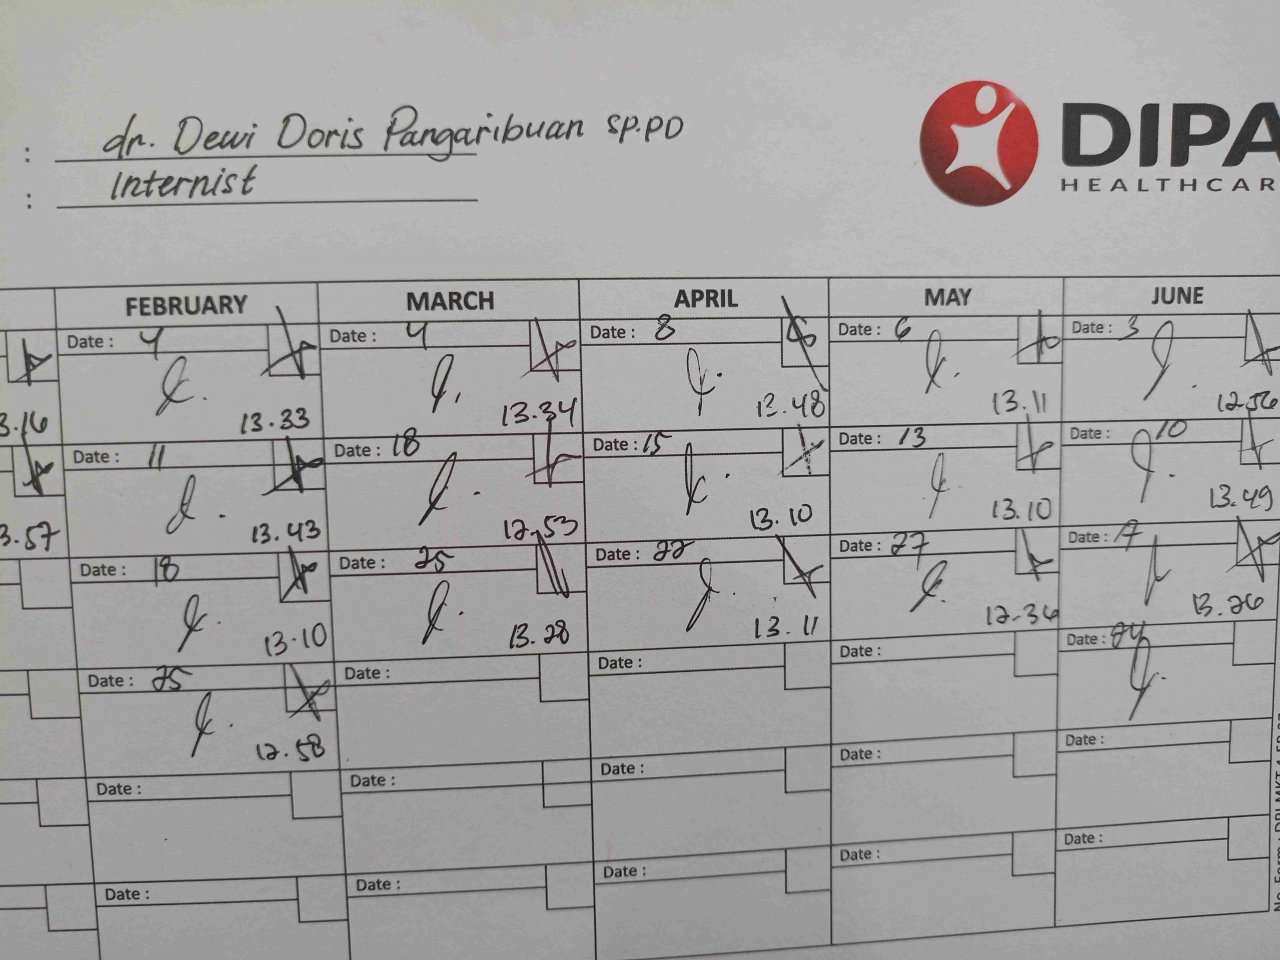 : dr. Dewi Doris Pangaribuan SP.PD
: Internist
DIPA
HEALTHCAR
FEBRUARY MARCH APRIL MAY JUNE
Date : 4 Date : 4 Date : 8 Date : 6 Date : 3
3.16 13.33 13.34 12.48 13.11 12.56
Date : 11 Date : 18 Date : 15 Date : 13 Date : 10
3.57 13.43 12.53 13.10 13.10 13.49
Date : 18 Date : 25 Date : 22 Date : 27 Date : 17
13.10 13.28 13.11 12.36 13.26
Date : 25 Date : Date : Date : Date : 24
12.58
Date : Date : Date : Date : Date :
Date : Date : Date : Date : Date :